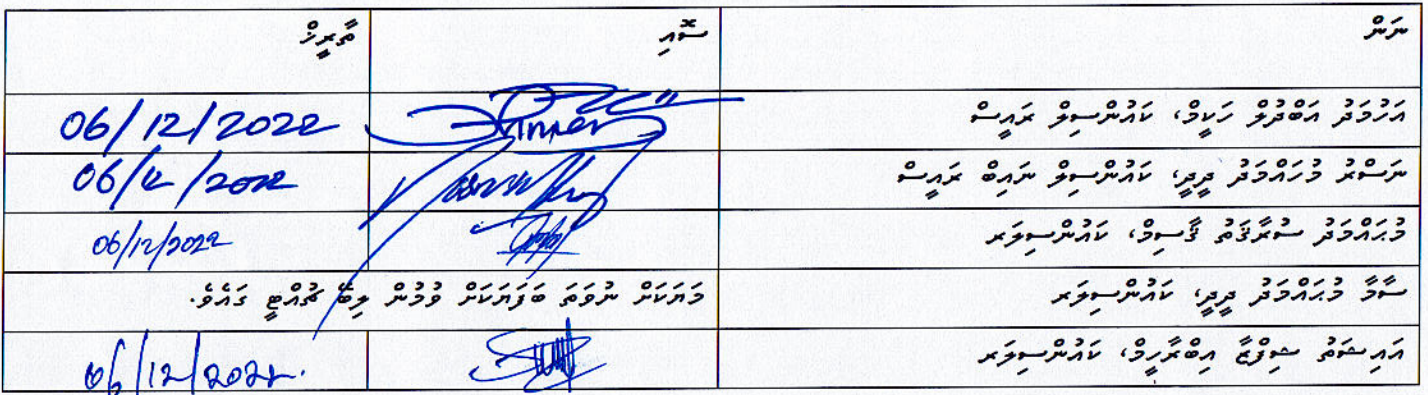 ނަން ސޮއި ތާރީޚް
އަހުމަދު އަބްދުލް ހަކީމް، ކައުންސިލް ރައީސް 06/12/2022
ނަސްރު މުހައްމަދު ދީދީ، ކައުންސިލް ނައިބް ރައީސް 06/12/2022
މުޙައްމަދު ސުރާޤަތު ޤާސިމް، ކައުންސިލަރ 06/12/2022
ސާމާ މުޙައްމަދު ދީދީ، ކައުންސިލަރ މަޔަކަށް ނުވަތަ ބަފަޔަކަށް ވުމުން ލިބޭ ޗުއްޓީ ގައެވެ.
އައިޝަތު ޝިފްޒާ އިބްރާހީމް، ކައުންސިލަރ 06/12/2022.